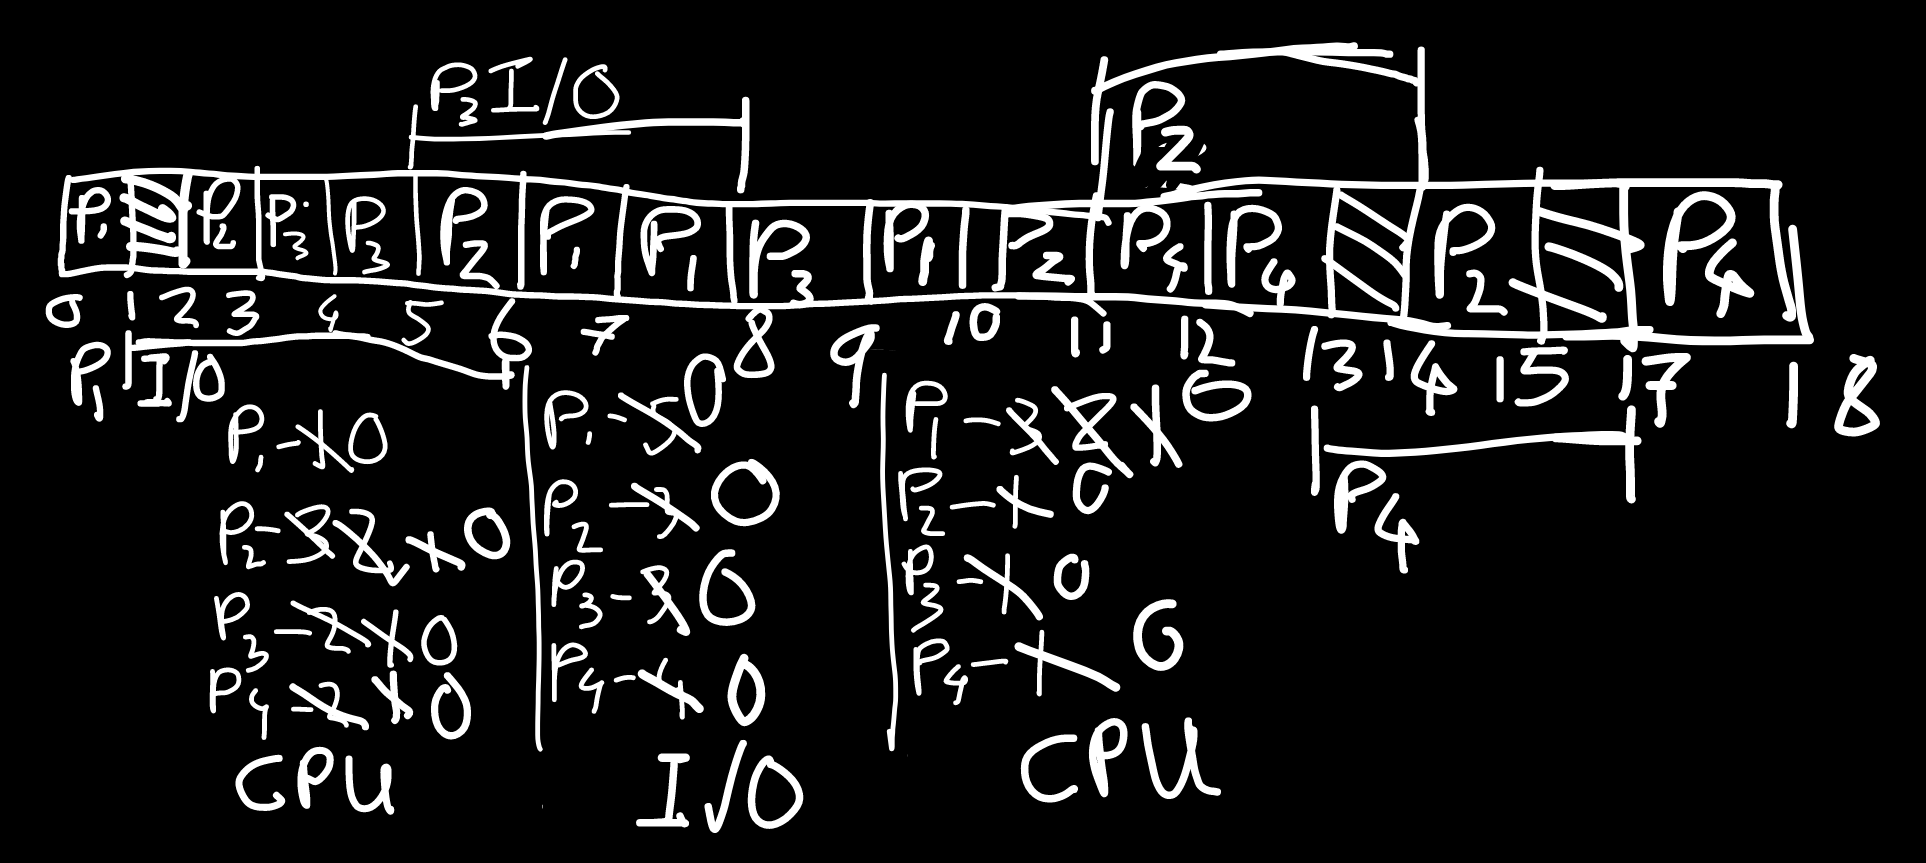 P3 I/O
P2
P1 P2 P3 P3 P2 P1 P1 P3 P1 P2 P4 P4 P2 P4
0 1 2 3 4 5 6 7 8 9 10 11 12 13 14 15 17 18
P1 I/O
P4
P1 - 1 0
P2 - 3 2 1 0
P3 - 2 1 0
P4 - 2 1 0
CPU
P1 - 5 0
P2 - 3 0
P3 - 3 0
P4 - 4 0
I/O
P1 - 3 2 1 0
P2 - 1 0
P3 - 1 0
P4 - 1 0
CPU